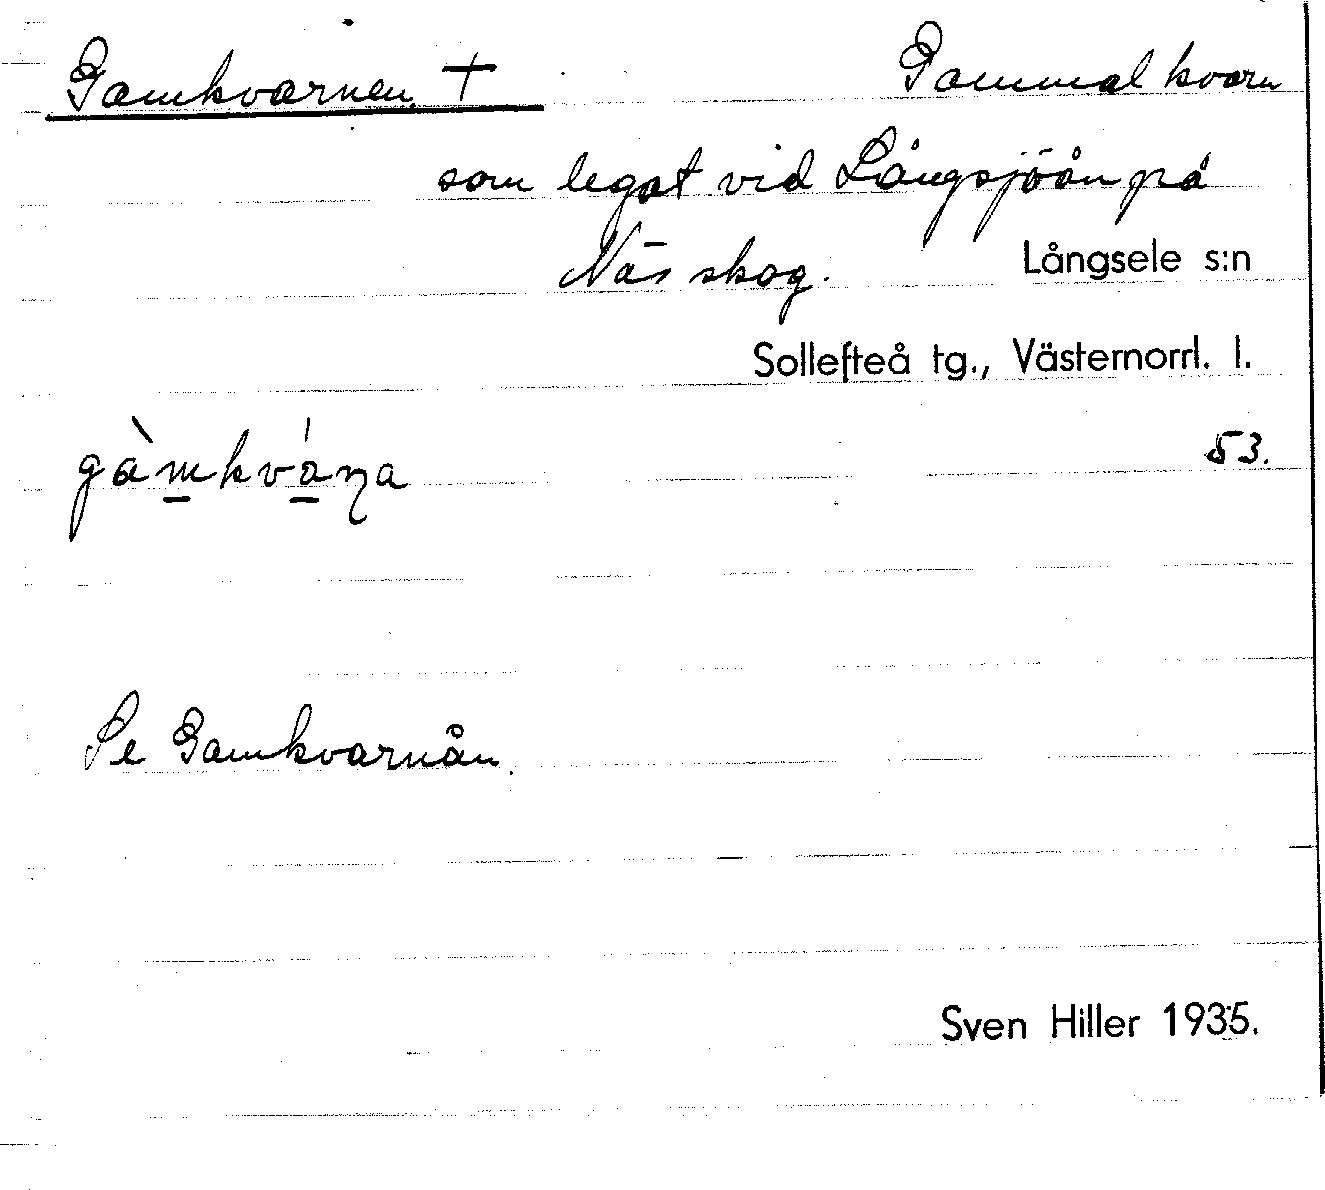 Gamkvarnen + Gammal kvarn
som legat vid Långsjöån på
Näs skog. Långsele s:n
Sollefteå tg., Västernorrl. l.
gàmkváṇa 53.
Se Gamkvarnån.
Sven Hiller 1935.